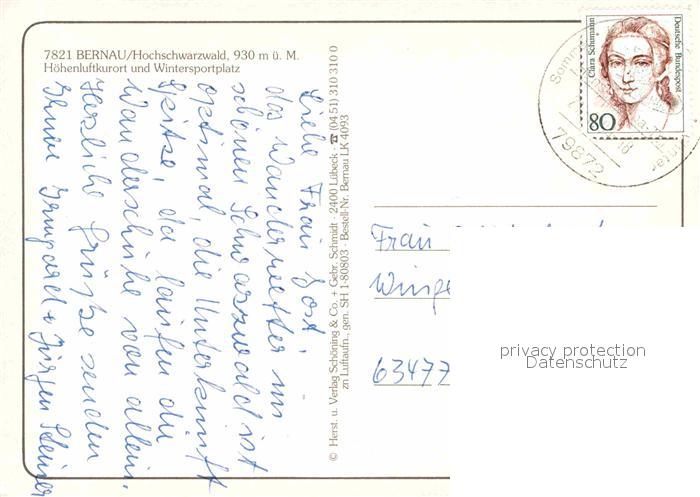 7821 BERNAU/Hochschwarzwald, 930 m ü. M.
Höhenluftkurort und Wintersportplatz
Liebe Frau Jost,
das Wanderwetter im
schönen Schwarzwald ist
optimal, die Unterkunft
spitze, da laufen die
Wanderschuhe von allein.
Herzliche Grüße senden
Ihnen Irmgard + Jürgen
© Herst. u. Verlag Schöning & Co. + Gebr. Schmidt · 2400 Lübeck · ☎ (04 51) 310 310 0
zn Luftaufn., gen. SH 1-80803 · Bestell-Nr. Bernau LK 4093
Clara Schumann
Deutsche Bundespost
80
79872
Frau
63477
privacy protection
Datenschutz